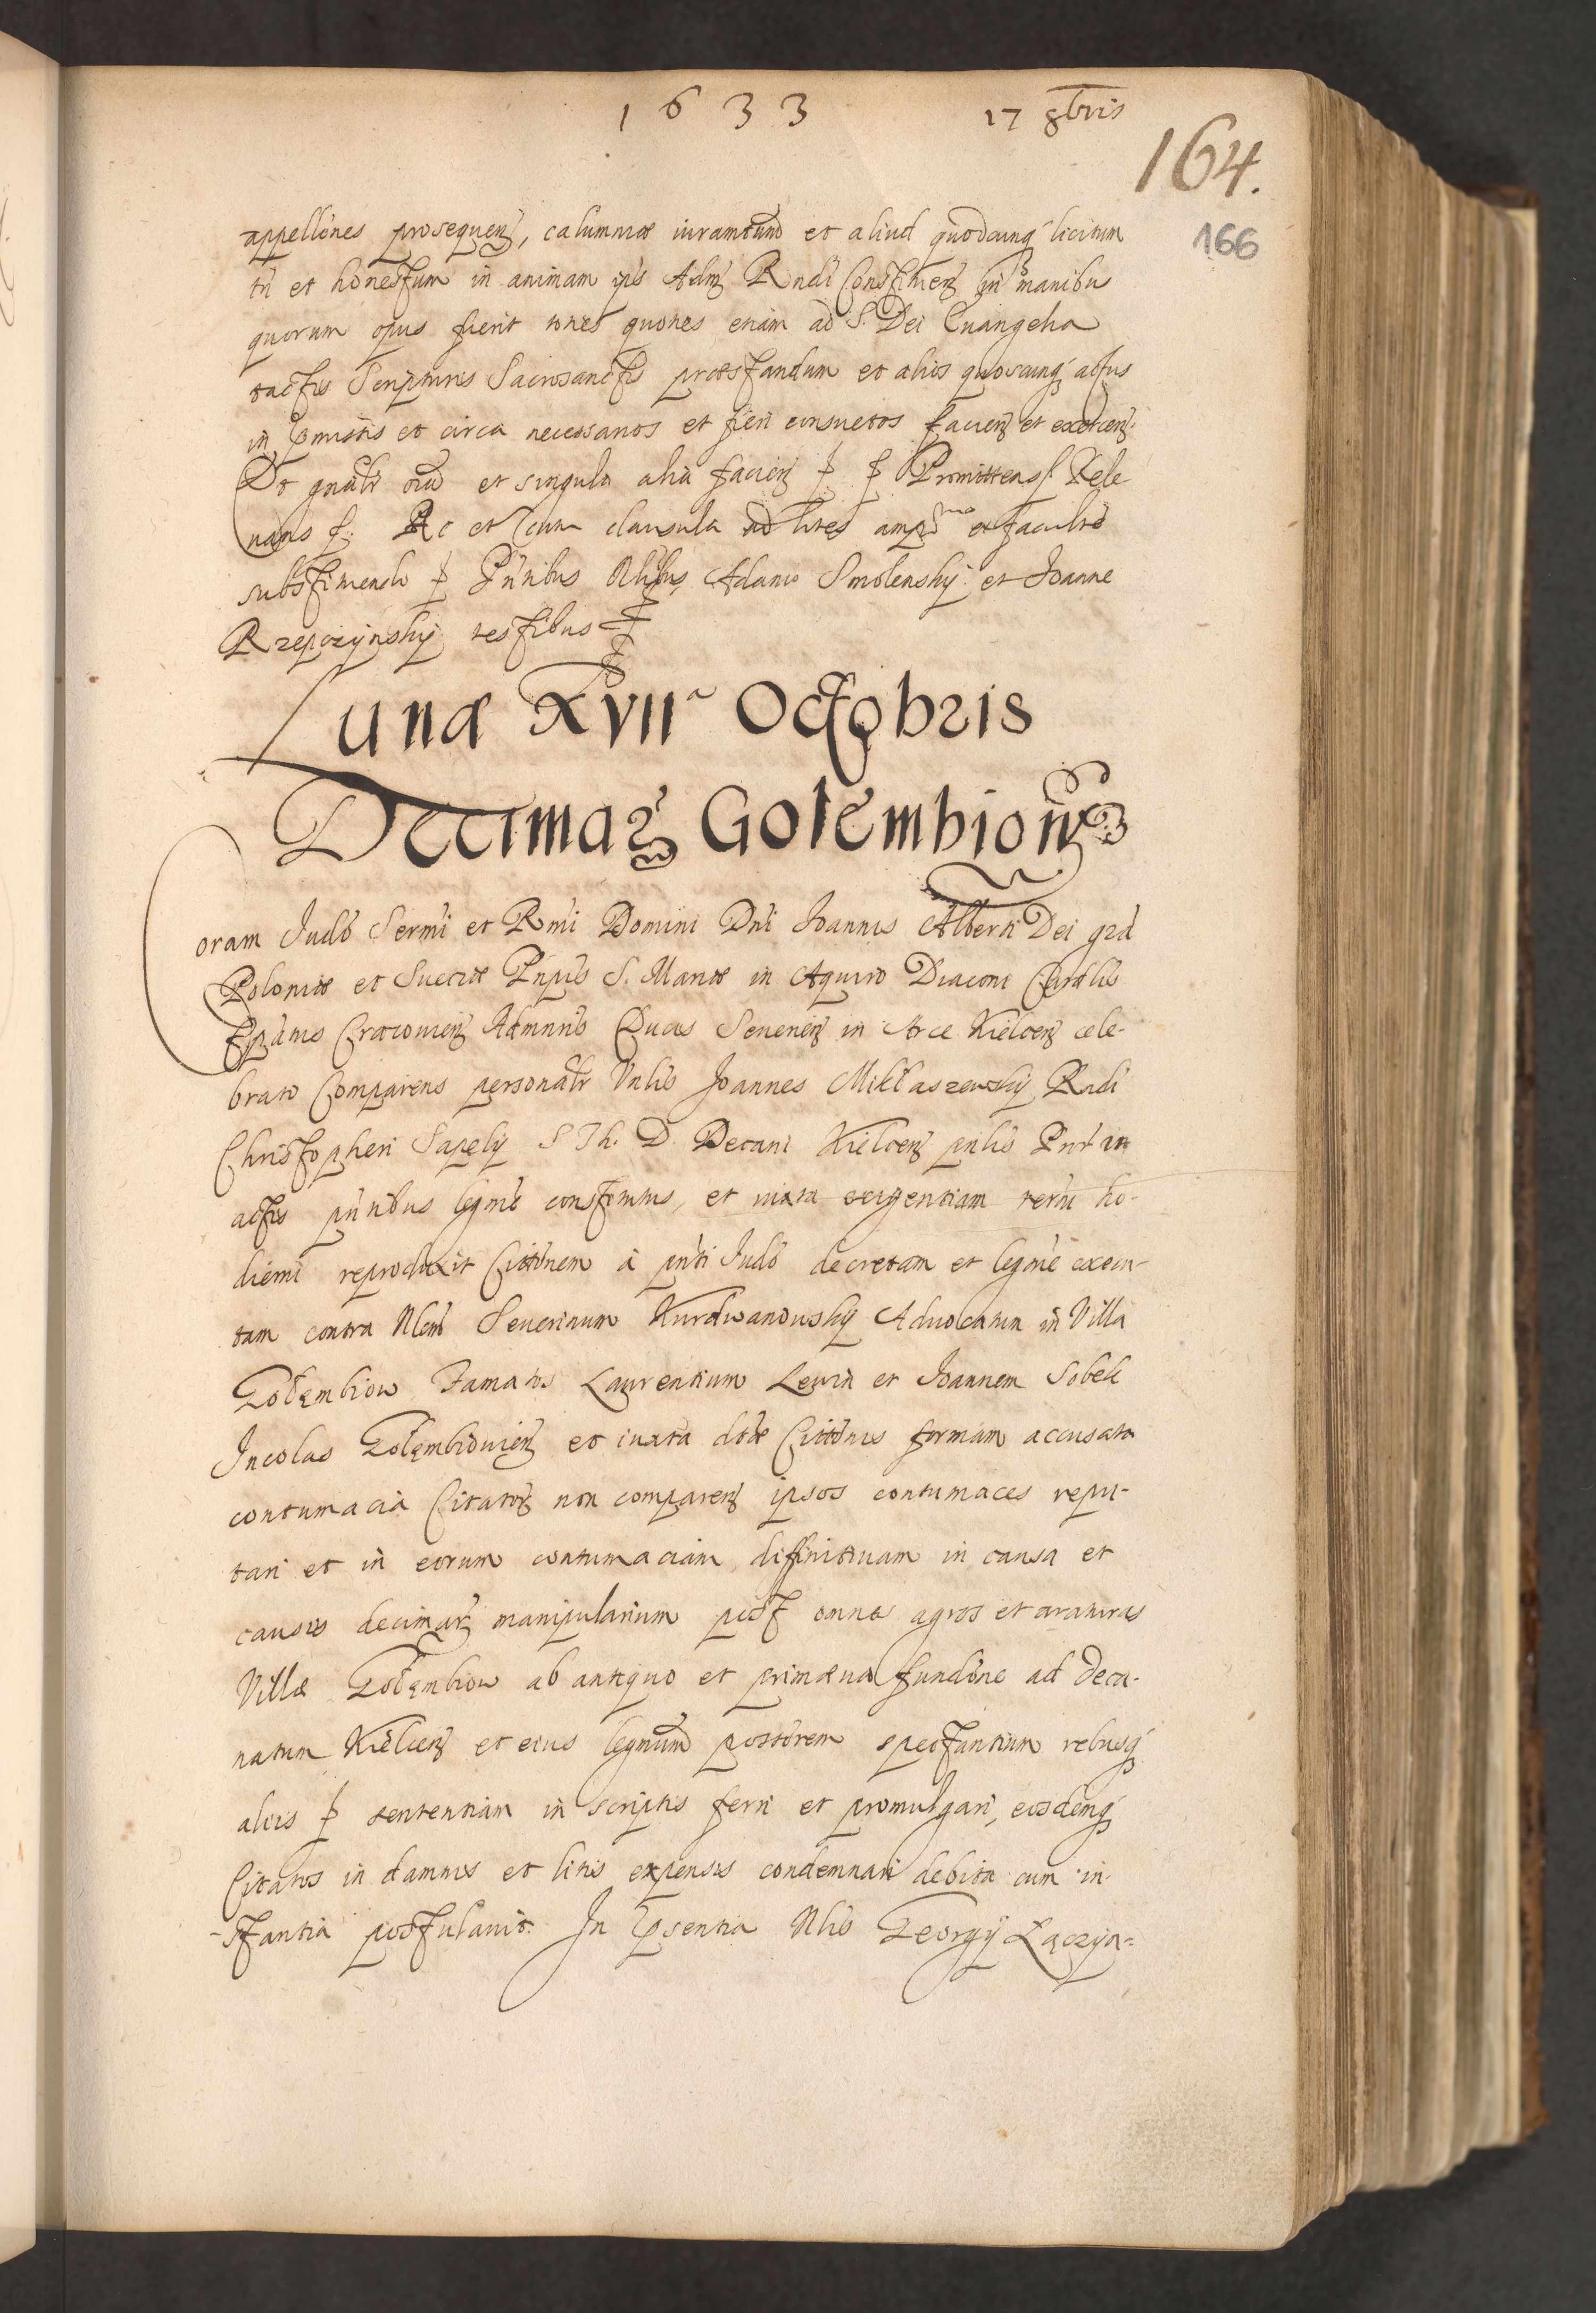 1633 17 8bris
164.
166
appellones prosequen, calumniae iuramtum et aliud quodcunq licitum
tn et honestum in animam ips Adm Rndi Constituen in manibus
quorum opus fuerit toties quoties etiam ad S. Dei Euangelia
tactis Scripturis Sacrosanctis praestandum et alios quoscunq actus
in praemissis et circa necessarios et fieri consuetos facien et exercen.
Et gnalr oia et singula alia facien Promittens Rele
uans Ac et cum clausula ad lites ampmo et facultе
substituendi Pntibus Nlibus Adamo Smolenskÿ et Joanne
Rzepczÿnskÿ testibus
Lunae XVIIa Octobris
Decimar Golembiow
Coram Judo Sermi et Rmi Domini Dni Joannis Alberti Dei gra
Poloniae et Sueciae Pnpis S. Mariae in Aquiro Diaconi Cardlis
Epatus Cracouien Admnris Ducis Seuerien in Arce Kielcen cele-
brato Comparens personalr Vnlis Joannes Miklaszewskÿ Rndi
Christopheri Sapelÿ S Th. D. Decani Kielcen pnlis Pror in
actis pntibus legme constitutus, et iuxta exigentiam termi ho-
dierni reproduxit Cittonem a pnti Judo decretam et legme execu-
tam contra Nlem Seuerinum Kurdwanowskÿ Aduocatum in Villa
Gołęmbiow Famatos Laurentium Lewin et Joannem Sobek
Incolas Gołęmbiouien et iuxta dtae Cittonis formam accusata
contumacia Citator non comparen ipsos contumaces repu-
tari et in eorum contumaciam diffinitiuam in causa et
causis decimar manipularium post omnes agros et araturas
Villae Gołęmbiow ab antiquo et primaeua fundone ad Deca-
natum Kielcen et eius legmum possorem spectantium rebusq
aliis sententiam in scriptis ferri et promulgari, eosdemq
Citatos in damnis et litis expensis condemnari debita cum in-
stantia postulauit. In Psentia Nlis Georgÿ Łączÿn=